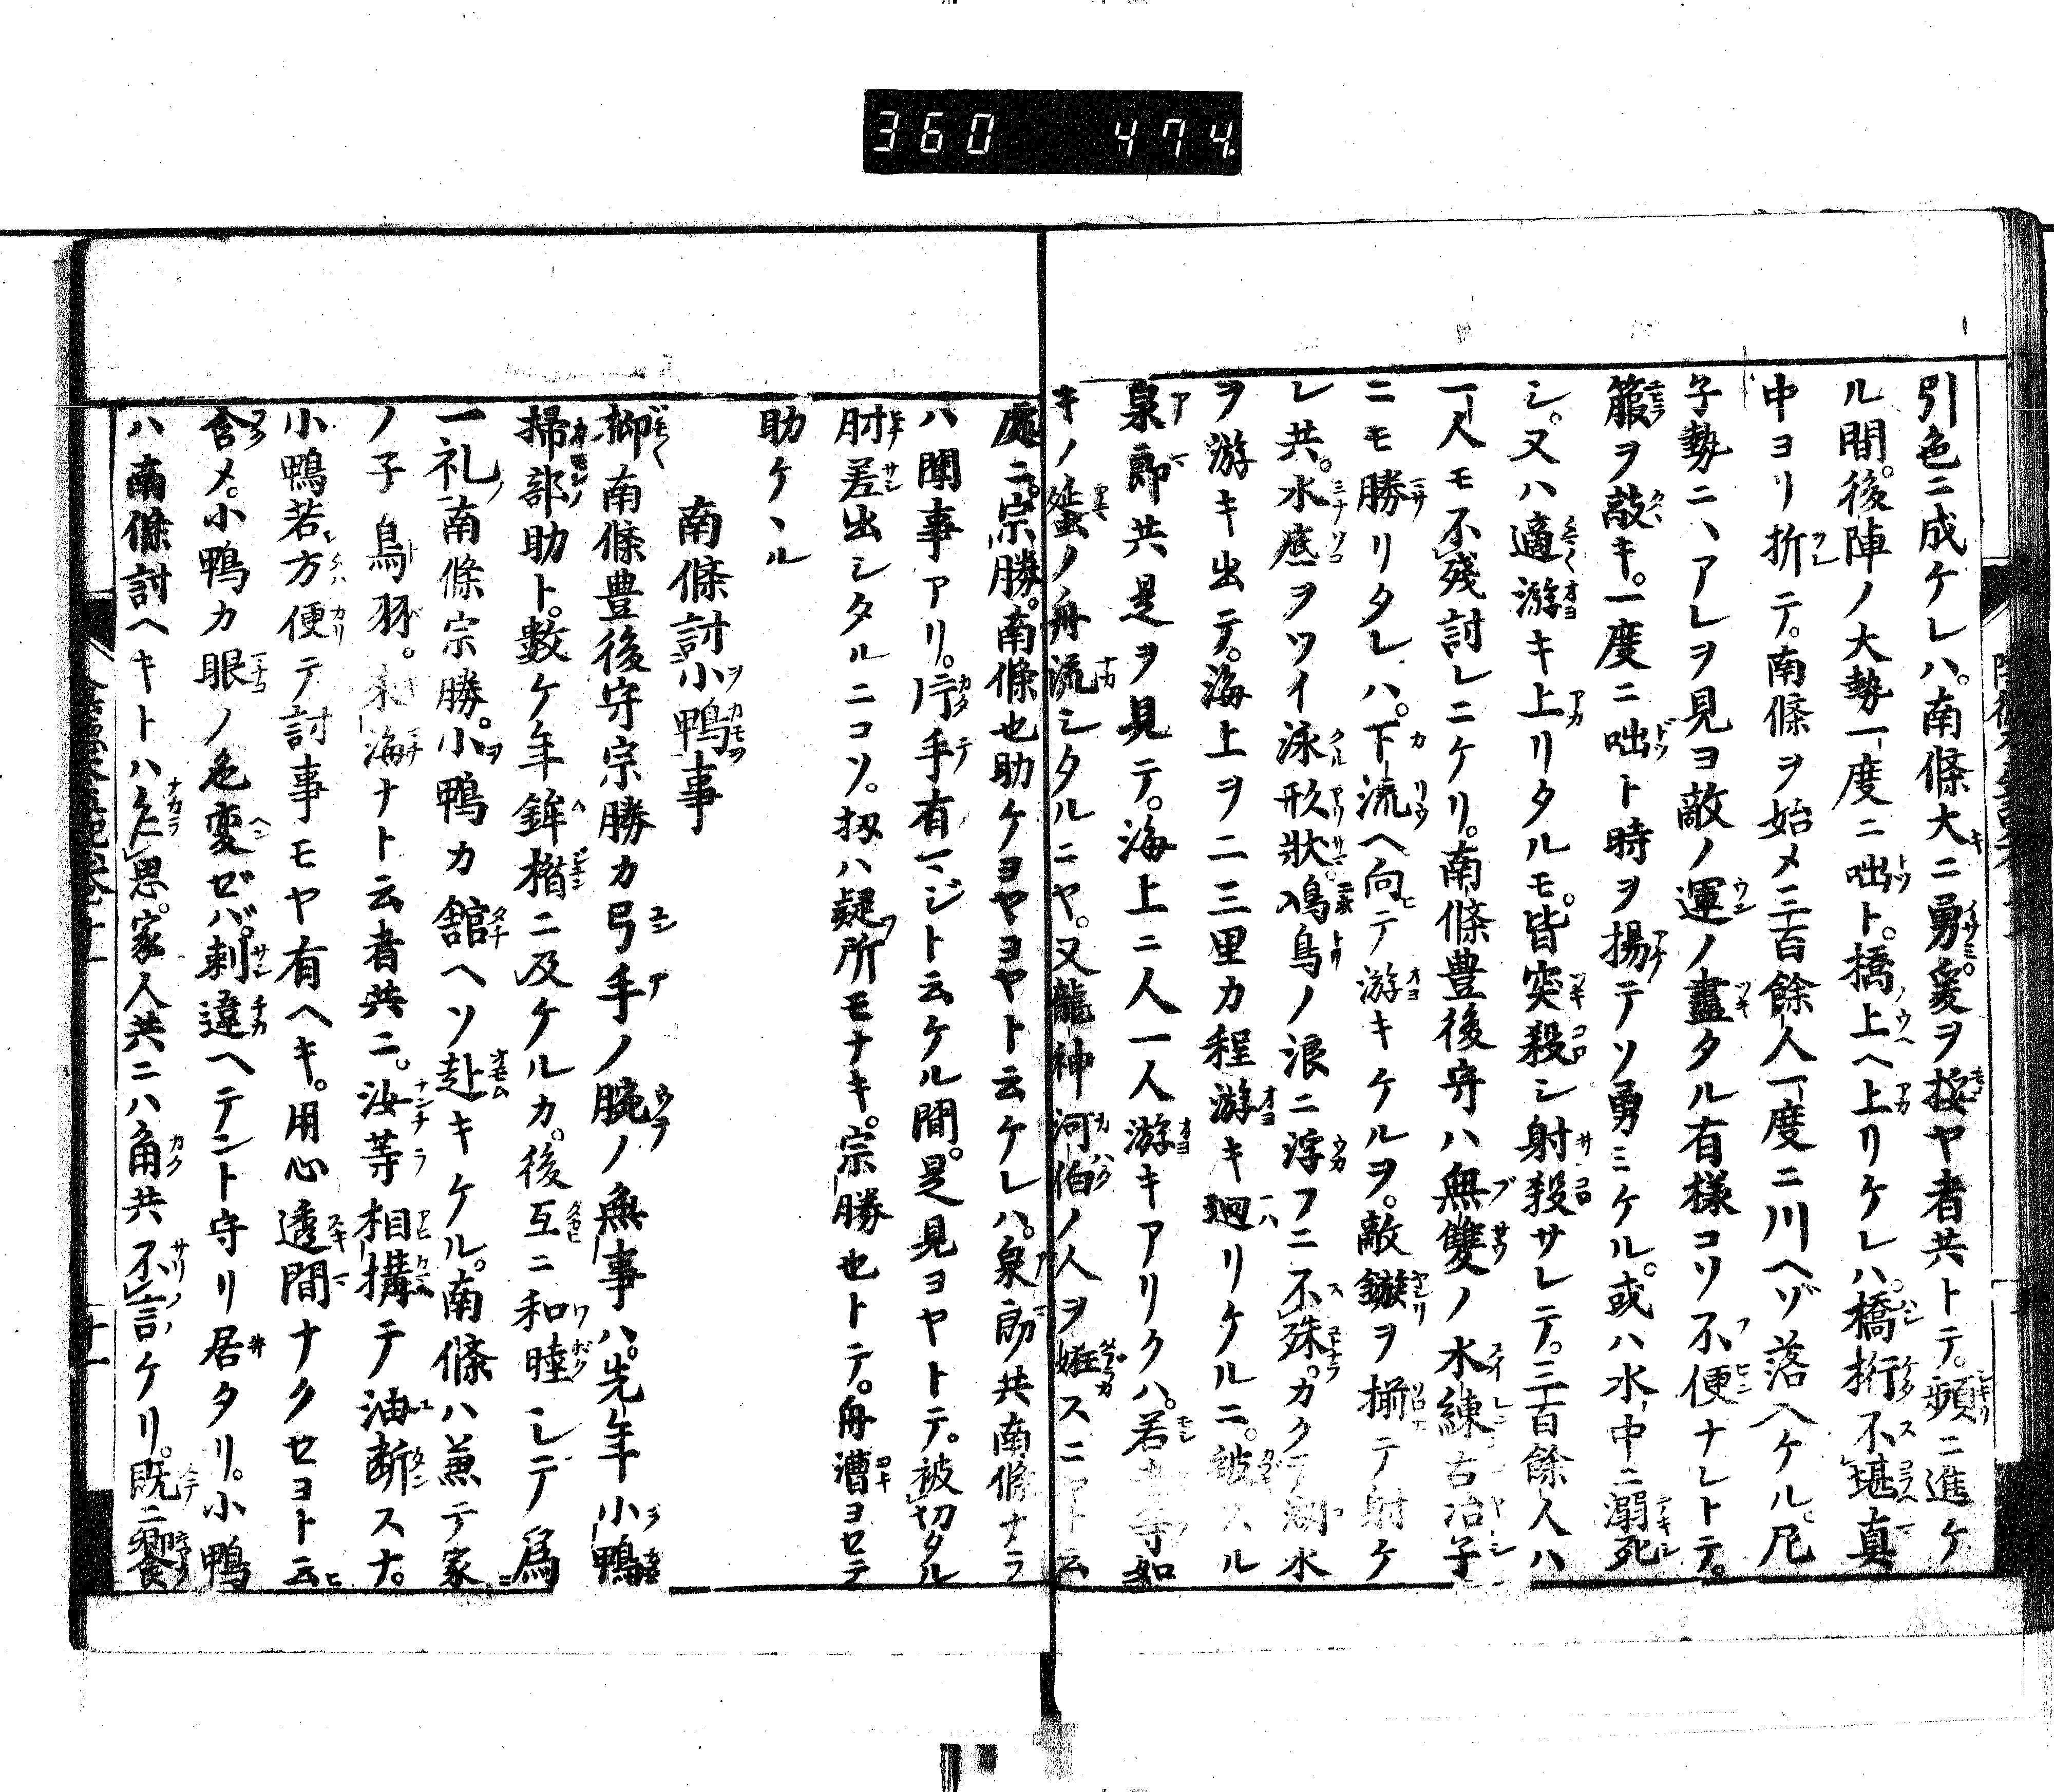 360 474
引色ニ成ケレハ。南條大ニ勇。爰ヲ採ヤ者共トテ。頻ニ進ケ
ル間。後陣ノ大勢一度ニ咄ト。橋上ヘ上リケレハ。橋桁不堪真
中ヨリ折テ。南條ヲ始メ三百餘人一度ニ川ヘゾ落入ケル。尼
子勢ニ、アレヲ見ヨ敵ノ運ノ盡タル有様コソ不便ナレトテ。
箙ヲ敲キ。一度ニ咄ト時ヲ揚テソ勇ミケル。或ハ水中ニ溺死
シ。又ハ適游キ上リタルモ。皆突殺シ射殺サレテ。三百餘人ハ
一人モ不殘討レニケリ。南條豊後守ハ無雙ノ水練古冶子
ニモ勝リタレハ。下流ヘ向テ游キケルヲ。敵鏃ヲ揃テ射ケ
レ共。水底ヲツイ泳形狀。鳰鳥ノ浪ニ浮フニ不殊。カクテ潮水
ヲ游キ出テ。海上ヲ二三里カ程游キ廻リケルニ。被スル
泉郎共是ヲ見テ。海上ニ人一人游キアリクハ。若 等如
キノ蜑ノ舟流シタルニヤ。又龍神河伯ノ人ヲ誑スニヤト云
處ニ。宗勝。南條也助ケヨヤヨヤト云ケレハ。泉郎共南條ナラ
ハ聞事アリ。片手有マジト云ケル間。是見ヨヤトテ。被切タル
肘差出シタルニコソ。扨ハ疑所モナキ。宗勝也トテ。舟漕ヨセテ
助ケヽル
南條討小鴨事
抑南條豊後守宗勝カ弓手ノ腕ノ無事ハ。先年小鴨
掃部助ト。數ケ年鉾楯ニ及ケルカ。後互ニ和睦シテ爲
一礼南條宗勝。小鴨カ舘ヘソ赴キケル。南條ハ兼テ家
ノ子鳥羽。 海ナト云者共ニ。汝等相構テ油断スナ。
小鴨若方便テ討事モヤ有ヘキ。用心透間ナクセヨト云
含メ。小鴨カ眼ノ色変ゼバ。刺違ヘテント守リ居タリ。小鴨
ハ南條討ヘキトハ乍思。家人共ニハ角共不言ケリ。既ニ饗